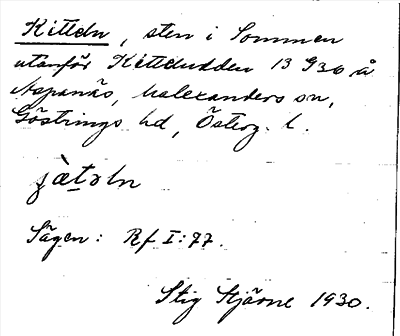 Kitteln, sten i Sommen
utanför Kitteludden 13 930 å
Aspanäs, Malexanders sn,
Göstrings hd, Österg. l.
jætəln
Sägen: Rf I:77.
Stig Stjärne 1930.